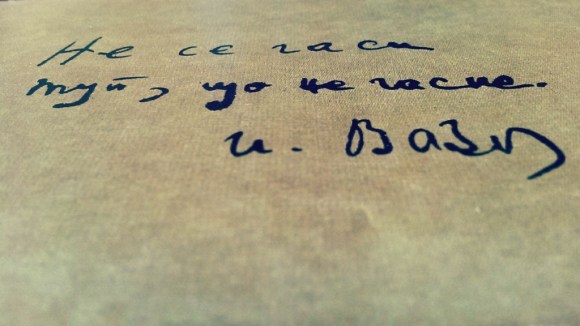 Не се гаси
туй, що не гасне.
и. Вазов